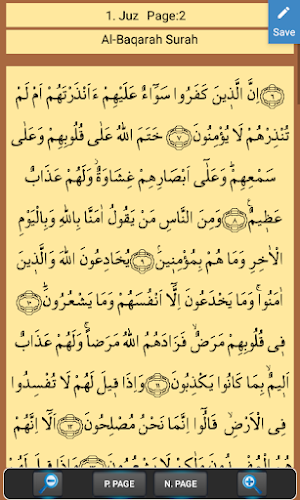 1. Juz Page:2
Save
Al-Baqarah Surah
﴿٦﴾ اِنَّ الَّذ۪ينَ كَفَرُوا سَوَٓاءٌ عَلَيْهِمْ ءَاَنْذَرْتَهُمْ اَمْ لَمْ
تُنْذِرْهُمْ لَا يُؤْمِنُونَ ﴿٧﴾ خَتَمَ اللّٰهُ عَلٰى قُلُوبِهِمْ وَعَلٰى
سَمْعِهِمْۜ وَعَلٰٓى اَبْصَارِهِمْ غِشَاوَةٌۘ وَلَهُمْ عَذَابٌ
عَظ۪يمٌ۟ ﴿٨﴾ وَمِنَ النَّاسِ مَنْ يَقُولُ اٰمَنَّا بِاللّٰهِ وَبِالْيَوْمِ
الْاٰخِرِ وَمَا هُمْ بِمُؤْمِن۪ينَۢ ﴿٩﴾ يُخَادِعُونَ اللّٰهَ وَالَّذ۪ينَ
اٰمَنُواۚ وَمَا يَخْدَعُونَ اِلَّٓا اَنْفُسَهُمْ وَمَا يَشْعُرُونَۜ ﴿١٠﴾
ف۪ي قُلُوبِهِمْ مَرَضٌۙ فَزَادَهُمُ اللّٰهُ مَرَضاًۚ وَلَهُمْ عَذَابٌ
اَل۪يمٌۙ بِمَا كَانُوا يَكْذِبُونَ ﴿١١﴾ وَاِذَا ق۪يلَ لَهُمْ لَا تُفْسِدُوا
فِي الْاَرْضِۙ قَالُٓوا اِنَّمَا نَحْنُ مُصْلِحُونَ ﴿١٢﴾ اَلَٓا اِنَّهُمْ
هُمُ الْمُفْسِدُونَ وَلٰكِنْ لَا يَشْعُرُونَ ﴿١٣﴾ وَاِذَا
P. PAGE
N. PAGE